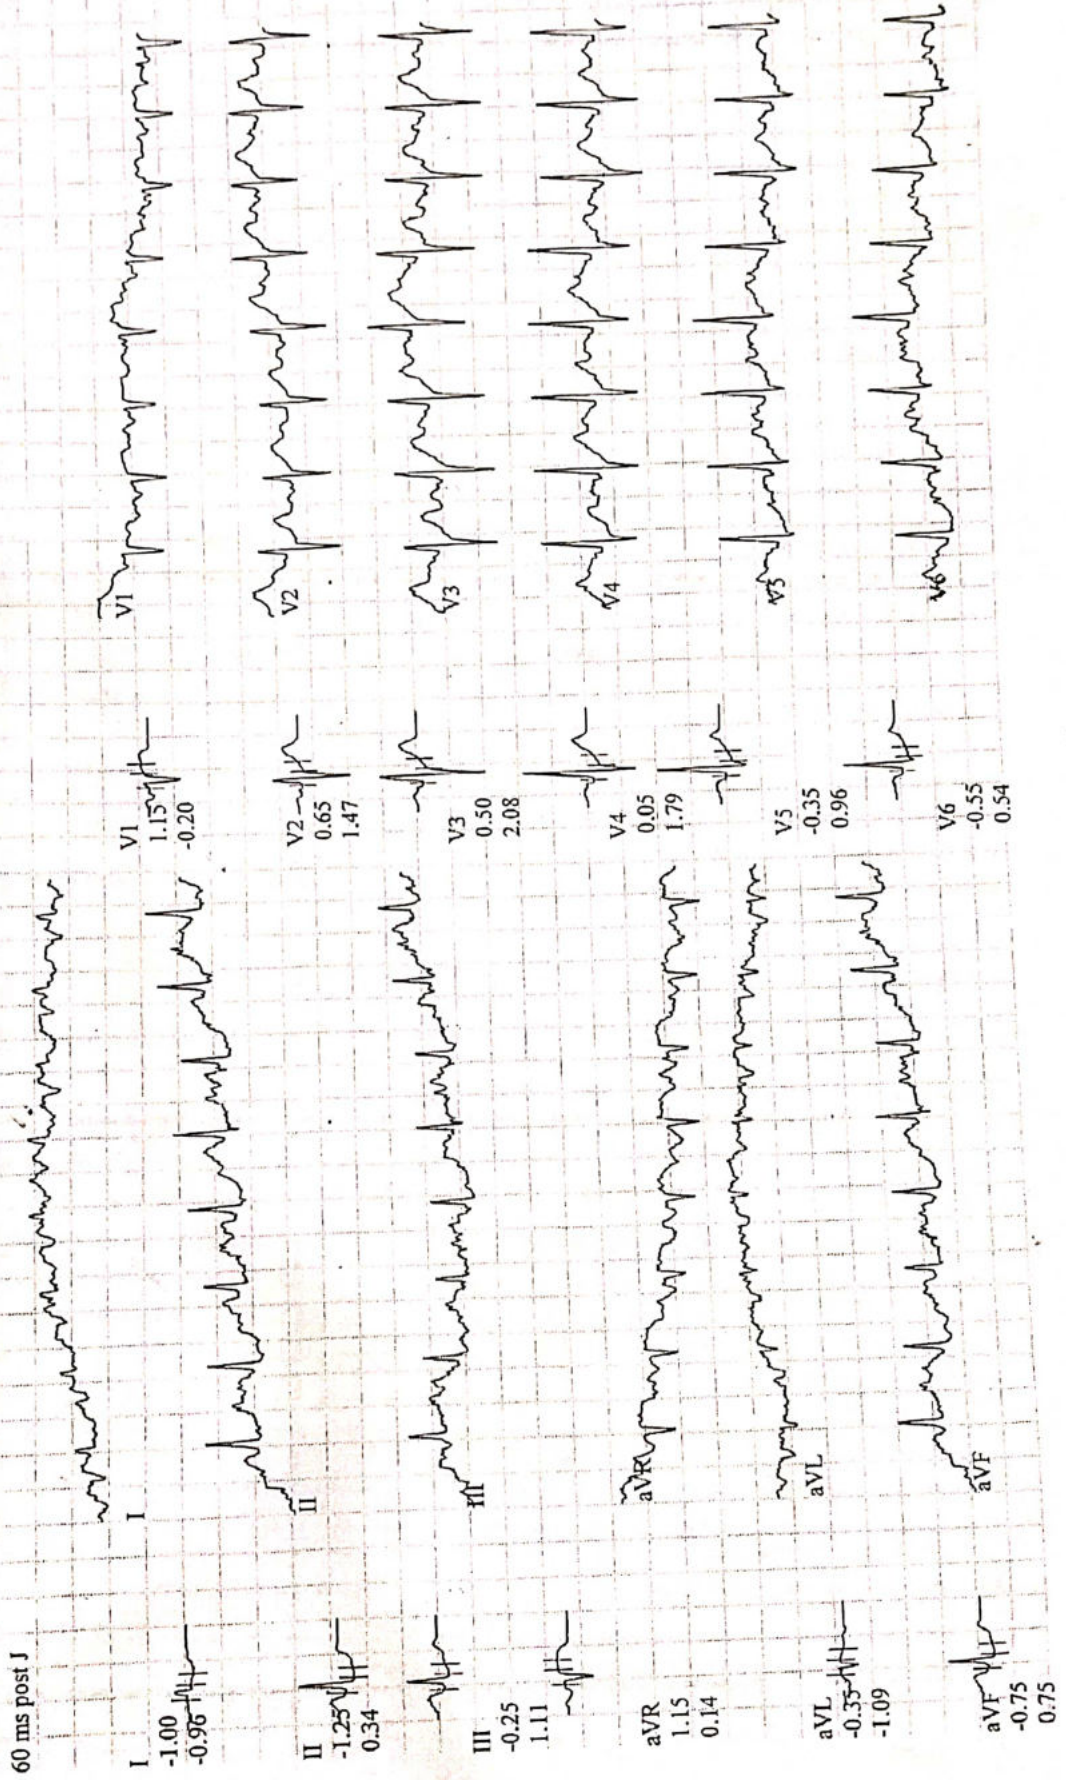 60 ms post J
I
-1.00
-0.96
II
-1.25
0.34
III
-0.25
1.11
aVR
1.15
0.14
aVL
-0.35
-1.09
aVF
-0.75
0.75
I
II
III
aVR
aVL
aVF
V1
1.15
-0.20
V2
0.65
1.47
V3
0.50
2.08
V4
0.05
1.79
V5
-0.35
0.96
V6
-0.55
0.54
V1
V2
V3
V4
V5
V6